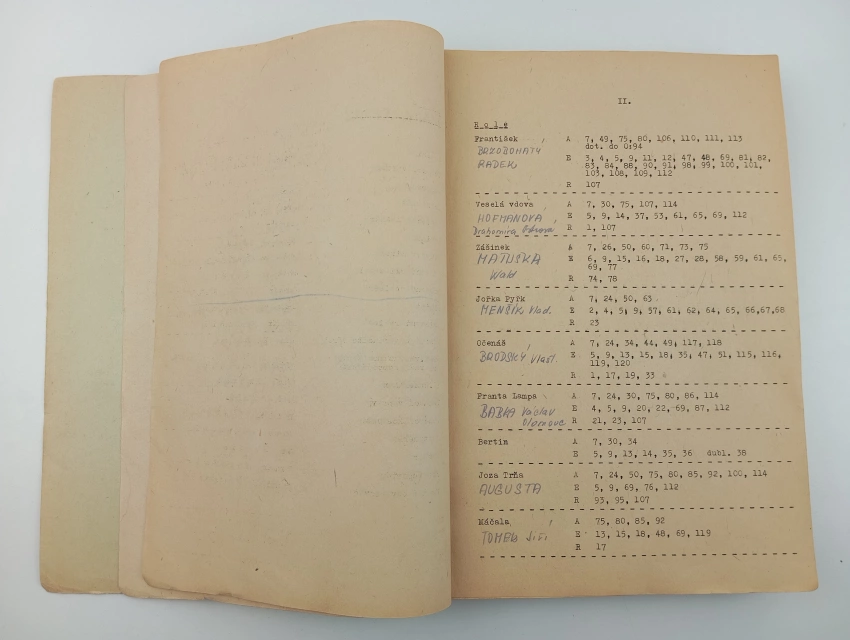 II.
Role
František A 7, 49, 75, 80, 106, 110, 111, 113
dot. do 0:94
BRZOBOHATÝ E 3, 4, 5, 9, 11, 12, 47, 48, 69, 81, 82,
RADEK 83, 84, 88, 90, 91, 98, 99, 100, 101,
103, 108, 109, 112
R 107
Veselá vdova A 7, 30, 75, 107, 114
HOFMANOVÁ E 5, 9, 14, 37, 53, 61, 65, 69, 112
Drahomíra R 1, 107
Zášinek A 7, 26, 50, 60, 71, 73, 75
MATUŠKA E 6, 9, 15, 16, 18, 27, 28, 58, 59, 61, 65,
Wald 69, 77
R 74, 78
Jořka Pyřk A 7, 24, 50, 63
MENŠÍK Vlad. E 2, 4, 5, 9, 57, 61, 62, 64, 65, 66,67,68
R 23
Očenáš A 7, 24, 34, 44, 49, 117, 118
BRODSKÝ Vlast. E 5, 9, 13, 15, 18, 35, 47, 51, 115, 116,
119, 120
R 1, 17, 19, 33
Franta Lampa A 7, 24, 30, 75, 80, 86, 114
BABKA Václav E 4, 5, 9, 20, 22, 69, 87, 112
Olomouc R 21, 23, 107
Bertin A 7, 30, 34
E 5, 9, 13, 14, 35, 36 dubl. 38
Joza Trňa A 7, 24, 50, 75, 80, 85, 92, 100, 114
AUGUSTA E 5, 9, 69, 76, 112
R 93, 95, 107
Máčala A 75, 80, 85, 92
TOMEK Jiří E 13, 15, 18, 48, 69, 119
R 17